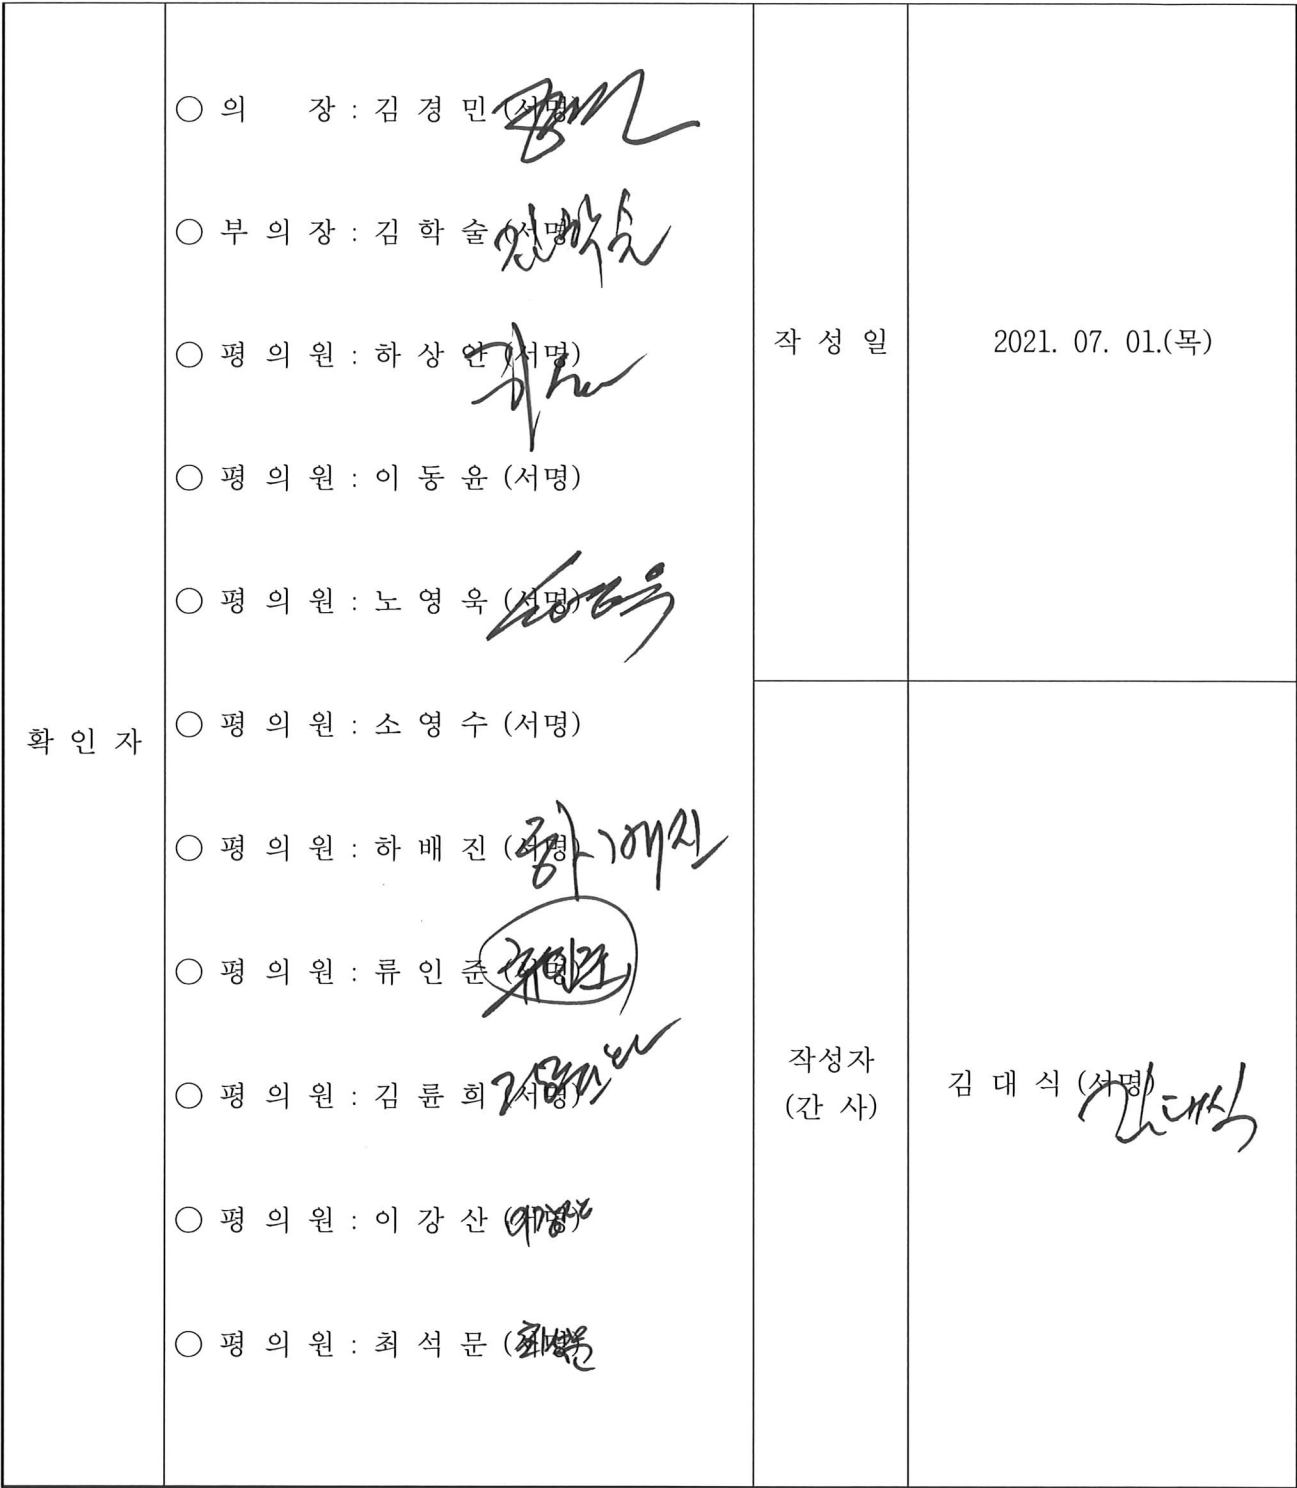 확 인 자
○ 의 장 : 김 경 민 (서명)
○ 부 의 장 : 김 학 술 (서명) 김학술
○ 평 의 원 : 하 상 안 (서명)
○ 평 의 원 : 이 동 윤 (서명)
○ 평 의 원 : 노 영 욱 (서명)
○ 평 의 원 : 소 영 수 (서명)
○ 평 의 원 : 하 배 진 (서명) 하배진
○ 평 의 원 : 류 인 준 (서명) 류인준
○ 평 의 원 : 김 륜 희 (서명)
○ 평 의 원 : 이 강 산 (서명) 이강산
○ 평 의 원 : 최 석 문 (서명) 최석문
작 성 일
2021. 07. 01.(목)
작성자
(간 사)
김 대 식 (서명) 김대식